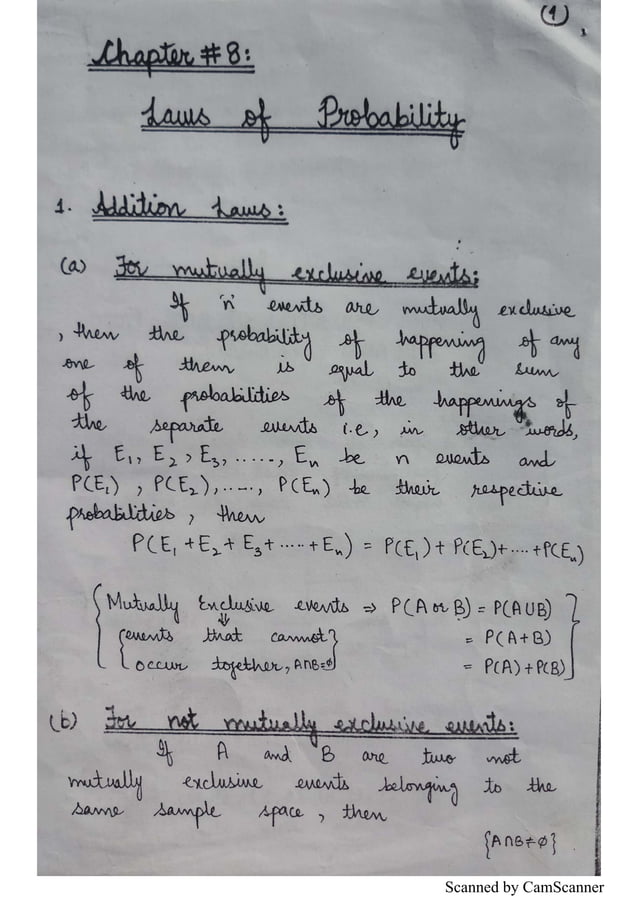 (1)
Chapter # 8:
Laws of Probability
1. Addition Laws:
(a) For mutually exclusive events:
If 'n' events are mutually exclusive
, then the probability of happening of any
one of them is equal to the sum
of the probabilities of the happenings of
the separate events i.e, in other words,
if E₁, E₂, E₃, ....., Eₙ be n events and
P(E₁), P(E₂), ....., P(Eₙ) be their respective
probabilities, then
P(E₁ + E₂ + E₃ + ..... + Eₙ) = P(E₁) + P(E₂) + .... + P(Eₙ)
{Mutually Exclusive events ⇒ P(A or B) = P(A∪B)
⇓
{events that cannot} = P(A+B)
{occur together, A∩B=∅} = P(A) + P(B)}
(b) For not mutually exclusive events:
If A and B are two not
mutually exclusive events belonging to the
same sample space, then
{A∩B≠∅}
Scanned by CamScanner